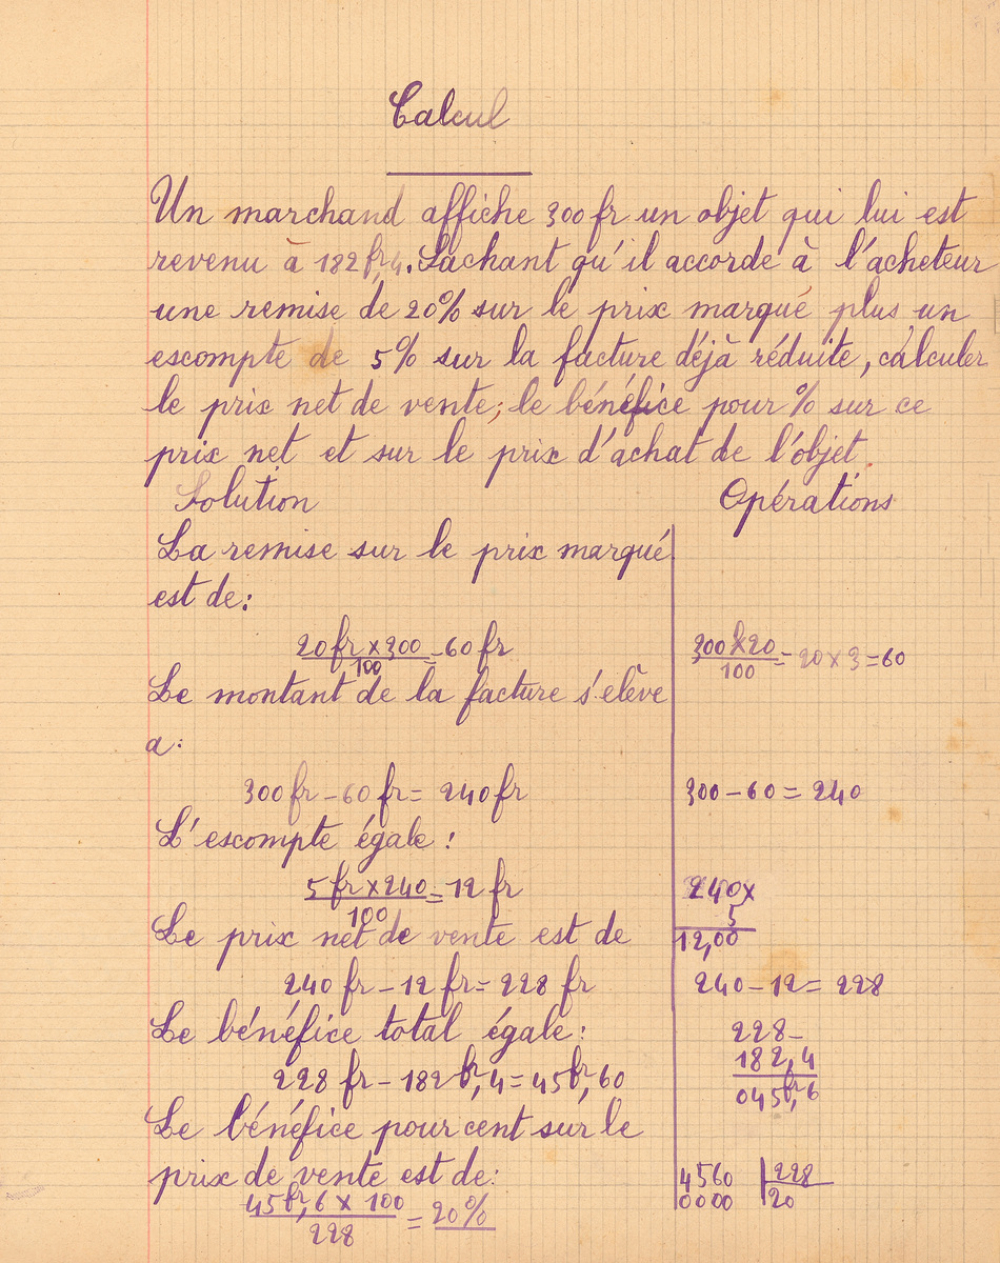 Calcul
Un marchand affiche 300 fr un objet qui lui est
revenu à 182fr,4. Sachant qu'il accorde à l'acheteur
une remise de 20% sur le prix marqué plus un
escompte de 5% sur la facture déjà réduite, calculer
le prix net de vente; le bénéfice pour % sur ce
prix net et sur le prix d'achat de l'objet.
Solution Opérations
La remise sur le prix marqué
est de:
20 fr x 300 / 100 = 60 fr 300 x 20 / 100 = 20 x 3 = 60
Le montant de la facture s'elève
a:
300 fr - 60 fr = 240 fr 300 - 60 = 240
L'escompte égale:
5 fr x 240 / 100 = 12 fr 240 x
5
Le prix net de vente est de 12,00
240 fr - 12 fr = 228 fr 240 - 12 = 228
Le bénéfice total égale: 228 -
182,4
228 fr - 182fr,4 = 45fr,60 045fr,6
Le bénéfice pour cent sur le
prix de vente est de: 4560 | 228
0000 | 20
45fr,6 x 100 / 228 = 20%